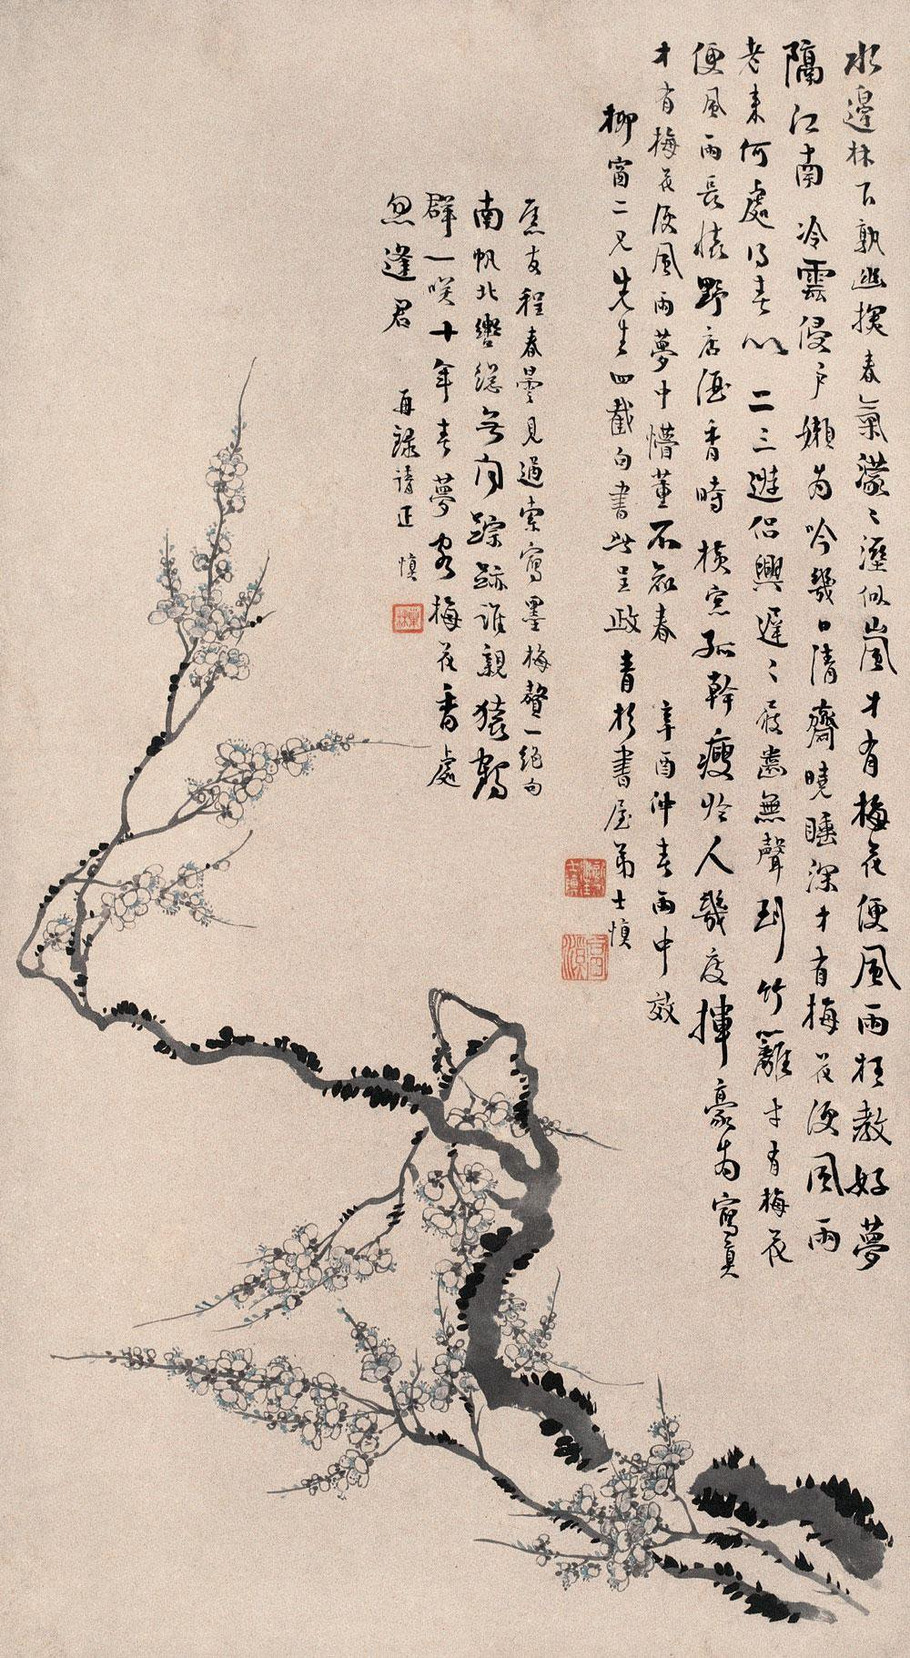 水邊林下孰幽探春氣濛〻溼似嵐才有梅花便風雨枉教好夢
隔江南 冷雲侵戶嬾為吟幾日清齋曉睡深才有梅花便風雨
老來何處得春心 二三遊侶興遲〻屐齒無聲到竹籬才有梅花
便風雨長 野店酒香時 橫窓孤幹瘦於人幾度揮豪為寫真
才有梅花便風雨夢中懵董不知春 辛酉仲春雨中效
柳窗二兄先生四截句書此呈政青杉書屋弟士慎
蕉友程春曇見過索寫墨梅贅一絕句
南帆北轡總無聞踪跡誰親猿鶴
群一咲十年春夢客梅花香處
忽逢君 再錄請正 慎